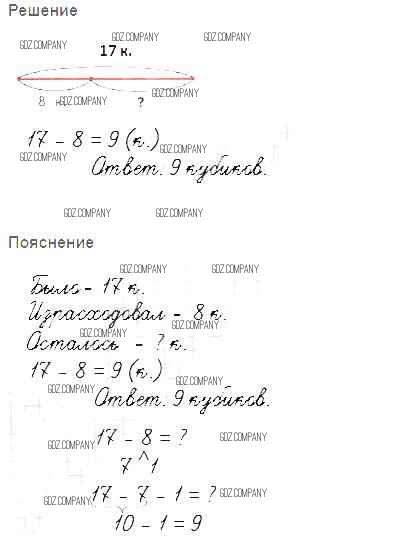 Решение
GDZ.COMPANY GDZ.COMPANY GDZ.COMPANY
17 к.
8 к. GDZ.COMPANY ? GDZ.COMPANY
17 - 8 = 9 (к.) GDZ.COMPANY
GDZ.COMPANY
Ответ. 9 кубиков.
GDZ.COMPANY GDZ.COMPANY
Пояснение
GDZ.COMPANY GDZ.COMPANY
Было - 17 к.
Израсходовал - 8 к.
GDZ.COMPANY GDZ.COMPANY
Осталось - ? к.
17 - 8 = 9 (к.)
GDZ.COMPANY GDZ.COMPANY
Ответ. 9 кубиков.
17 - 8 = ? GDZ.COMPANY
GDZ.COMPANY
7 ^ 1
GDZ.COMPANY 17 - 7 - 1 = ? GDZ.COMPANY
10 - 1 = 9